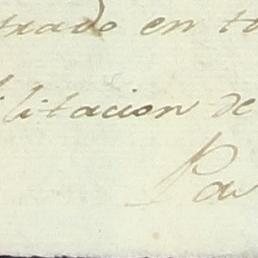 trado en to
litacion de
Pa